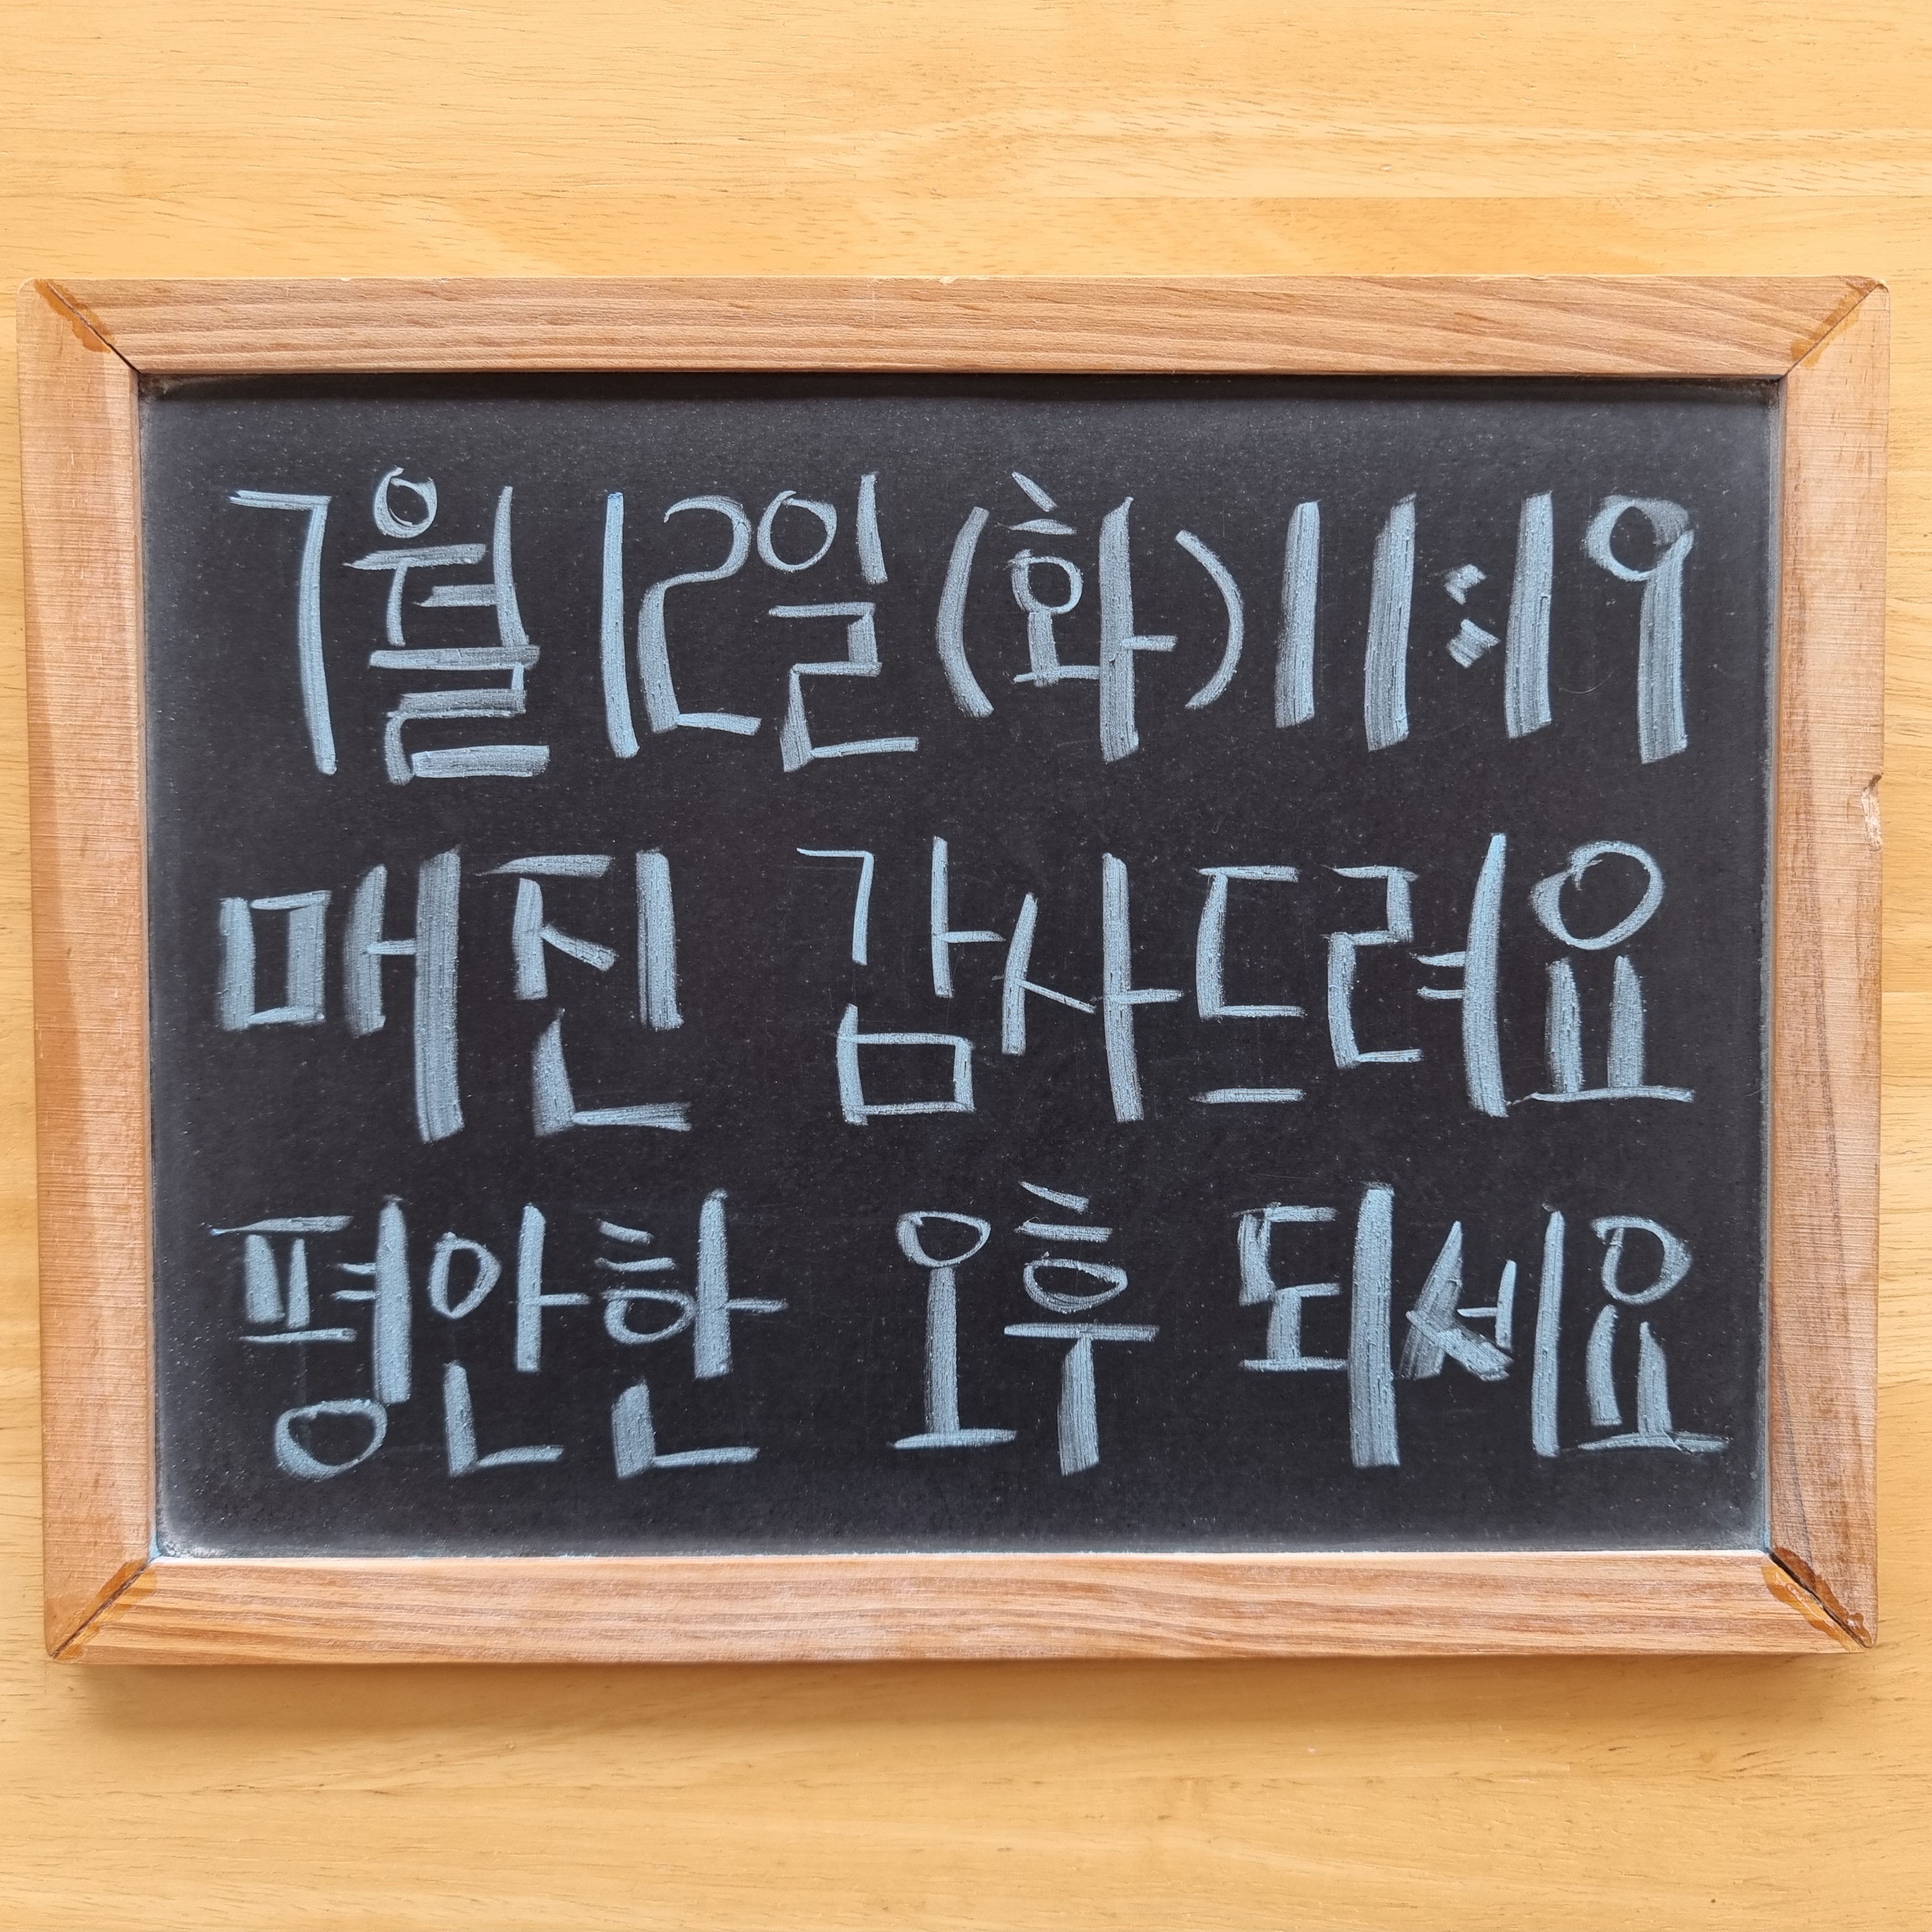 7월 12일(화) 11:19
매진 감사드려요
평안한 오후 되세요